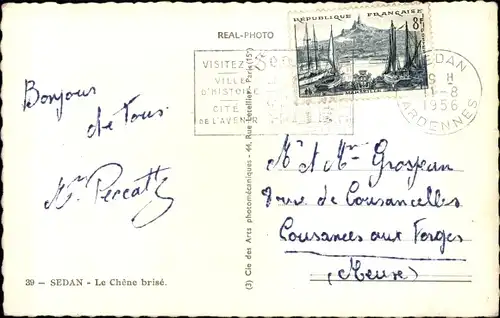 REAL-PHOTO
RÉPUBLIQUE FRANÇAISE
8F
VISITEZ
VILLE
D'HISTOIRE
CITÉ
DE L'AVENIR
SEDAN
11-8
1956
ARDENNES
Bonjour
de tous
Mr Peccatte
(3) Cie des Arts photomécaniques - 44, Rue Letellier - Paris (15e)
Mr et Mme Grosjean
rue de Cousancelles
Cousances aux Forges
(Meuse)
39 — SEDAN - Le Chêne brisé.